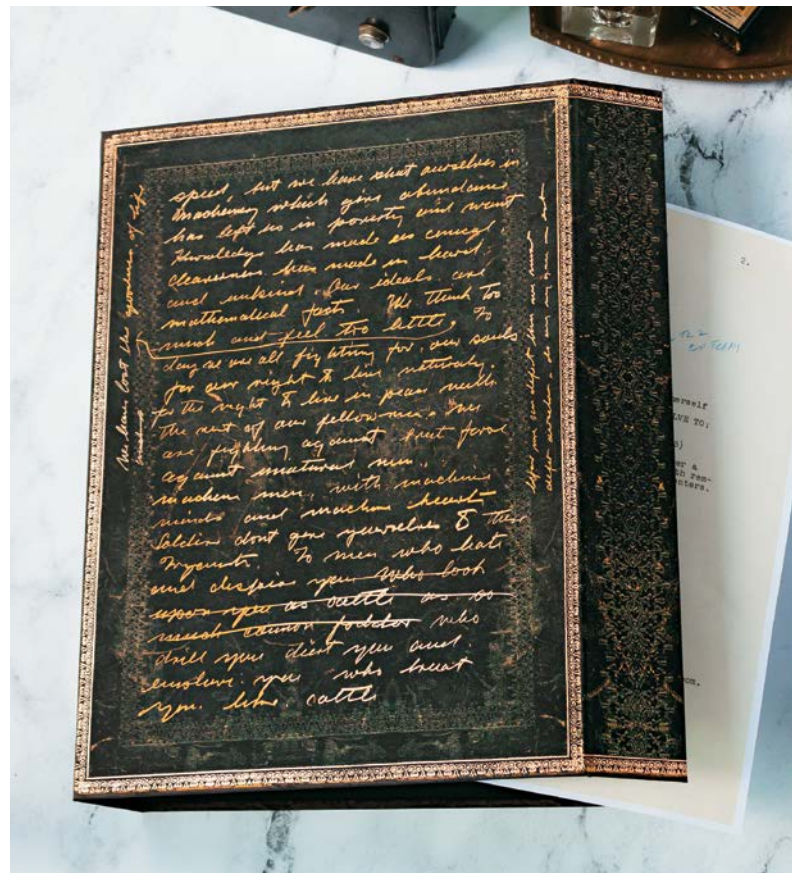 We have lost the goodness of life
speed, but we have shut ourselves in
Machinery which gives abundance
has left us in poverty and want
Knowledge has made us
has made us
and unkind. Our ideals are
mathematical facts. We think too
much and feel too little, To
day we are all fighting for our souls
for our right to live naturaly.
for the right to live in peace with
the rest of our fellow men. We
are fighting against brut force
against unatural men.
machien men, with machine
minds and machine hearts
Soldiers dont give yourselves to these
To men who hate
and despise you who look
upon you as cattle as so
much cannon fodder who
drill you diert you and.
enslave you who treat
you like cattle
2.
erself
LVE TO:
er a
enters.
on.